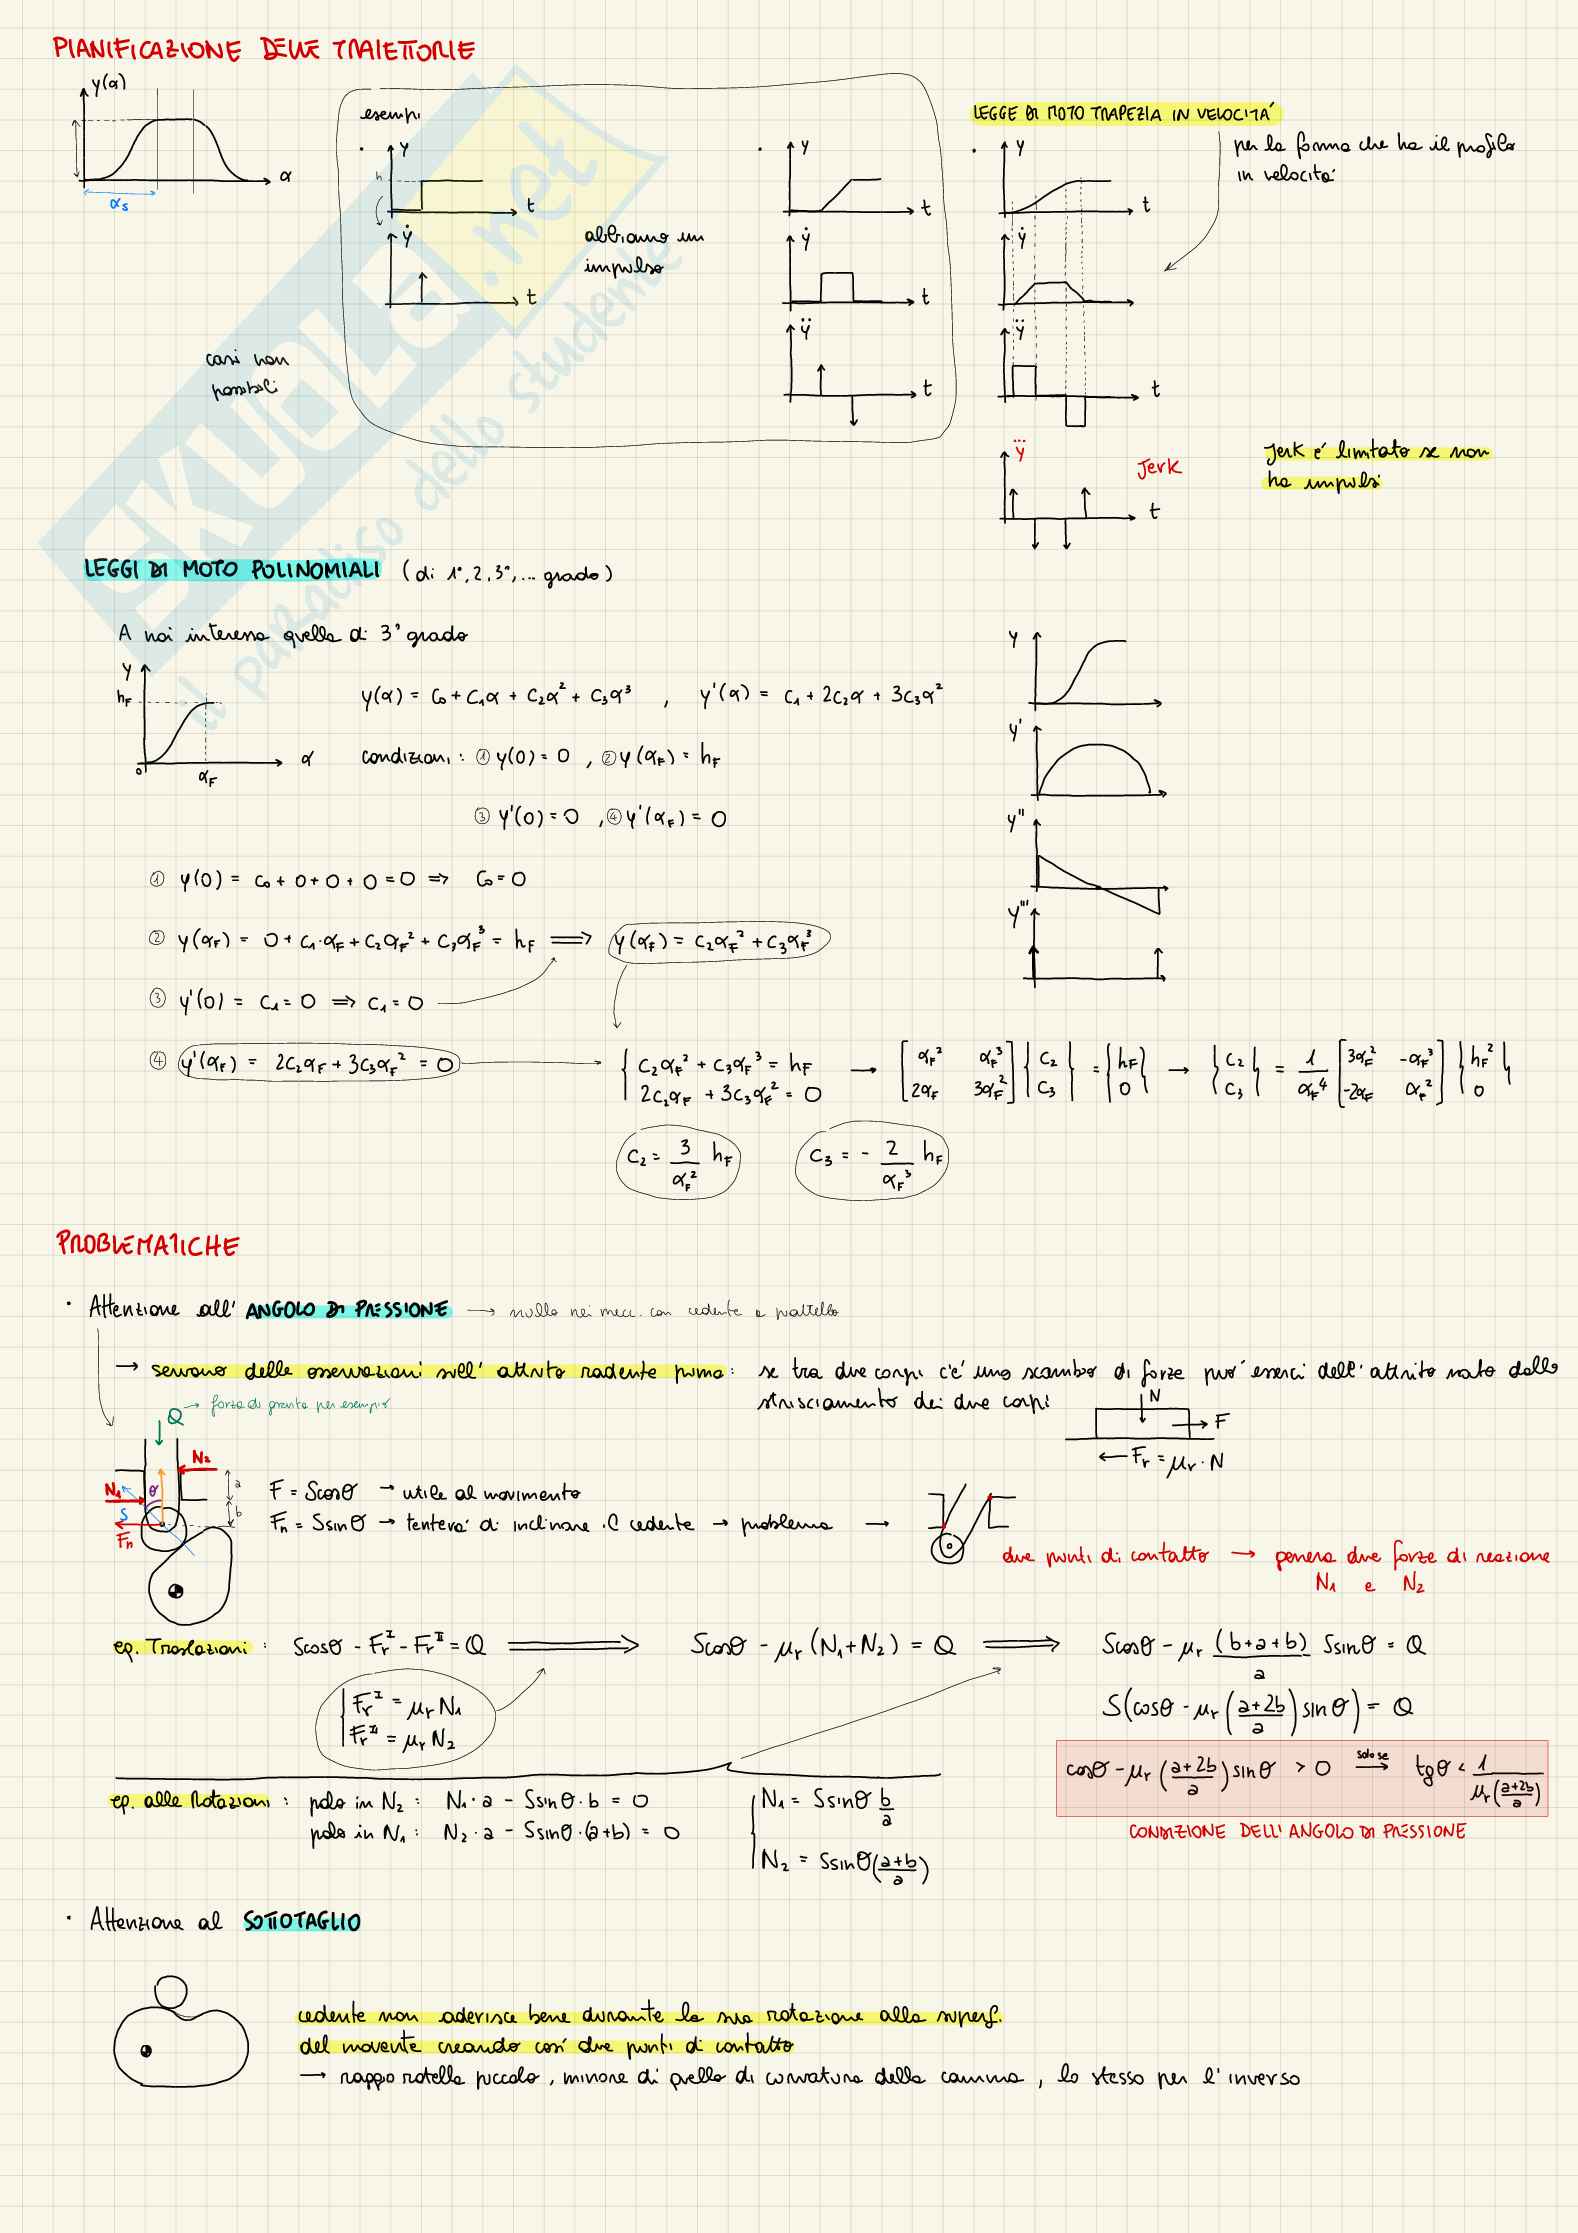 PIANIFICAZIONE DELLE TRAIETTORIE
y(α)
α
αs
esempi
y
h
t
ẏ
t
abbiamo un
impulso
casi non
possibili
y
t
ẏ
t
ÿ
t
LEGGE DI MOTO TRAPEZIA IN VELOCITÁ
per la forma che ha il profilo
in velocità
y
t
ẏ
ÿ
t
y⃛
Jerk
t
Jerk é limitato se non
ha impulsi
LEGGI DI MOTO POLINOMIALI (di 1°, 2, 3°, ... grado)
A noi interessa quella di 3° grado
y
hF
0
αF
α
y(α) = c₀ + c₁α + c₂α² + c₃α³ , y'(α) = c₁ + 2c₂α + 3c₃α²
condizioni: ① y(0) = 0 , ② y(αF) = hF
③ y'(0) = 0 , ④ y'(αF) = 0
y
y'
y''
y'''
① y(0) = c₀ + 0 + 0 + 0 = 0 ⇒ c₀ = 0
② y(αF) = 0 + c₁·αF + c₂αF² + c₃αF³ = hF ⟹ y(αF) = c₂αF² + c₃αF³
③ y'(0) = c₁ = 0 ⇒ c₁ = 0
④ y'(αF) = 2c₂αF + 3c₃αF² = 0
{ c₂αF² + c₃αF³ = hF
2c₂αF + 3c₃αF² = 0
→ [αF² αF³ 2αF 3αF²] {c₂ c₃} = {hF 0} → {c₂ c₃} = 1/αF⁴ [3αF² -αF³ -2αF αF²] {hF² 0}
c₂ = 3/αF² hF
c₃ = - 2/αF³ hF
PROBLEMATICHE
· Attenzione all' ANGOLO DI PRESSIONE → nullo nei mecc. con cedente a piattello
→ servono delle osservazioni sull' attrito radente prima: se tra due corpi c'é uno scambio di forze puó esserci dell' attrito nato dallo
strisciamento dei due corpi
Q → forza di gravità per esempio
N
F
← Fr = μr · N
N₂
N₁
θ
S
Fn
a
b
F = Scosθ → utile al movimento
Fn = Ssinθ → tenterá di inclinare il cedente → problema →
due punti di contatto → genera due forze di reazione
N₁ e N₂
eq. Traslazioni: Scosθ - Frᴵ - Frᴵᴵ = Q ⟹ Scosθ - μr (N₁ + N₂) = Q ⟹ Scosθ - μr (b+a+b)/a Ssinθ = Q
{ Frᴵ = μr N₁
Frᴵᴵ = μr N₂
S(cosθ - μr (a+2b/a) sinθ) = Q
cosθ - μr (a+2b/a) sinθ > 0 solo se → tgθ < 1/μr(a+2b/a)
CONDIZIONE DELL' ANGOLO DI PRESSIONE
eq. alle Rotazioni: polo in N₂: N₁·a - Ssinθ·b = 0
polo in N₁: N₂·a - Ssinθ·(a+b) = 0
{ N₁ = Ssinθ b/a
N₂ = Ssinθ (a+b/a)
· Attenzione al SOTTOTAGLIO
cedente non aderisce bene durante la sua rotazione alla superf.
del movente creando cosí due punti di contatto
→ raggio rotella piccolo, minore di quello di curvatura della camma, lo stesso per l'inverso
SKUOLA.net
il paradiso dello studente